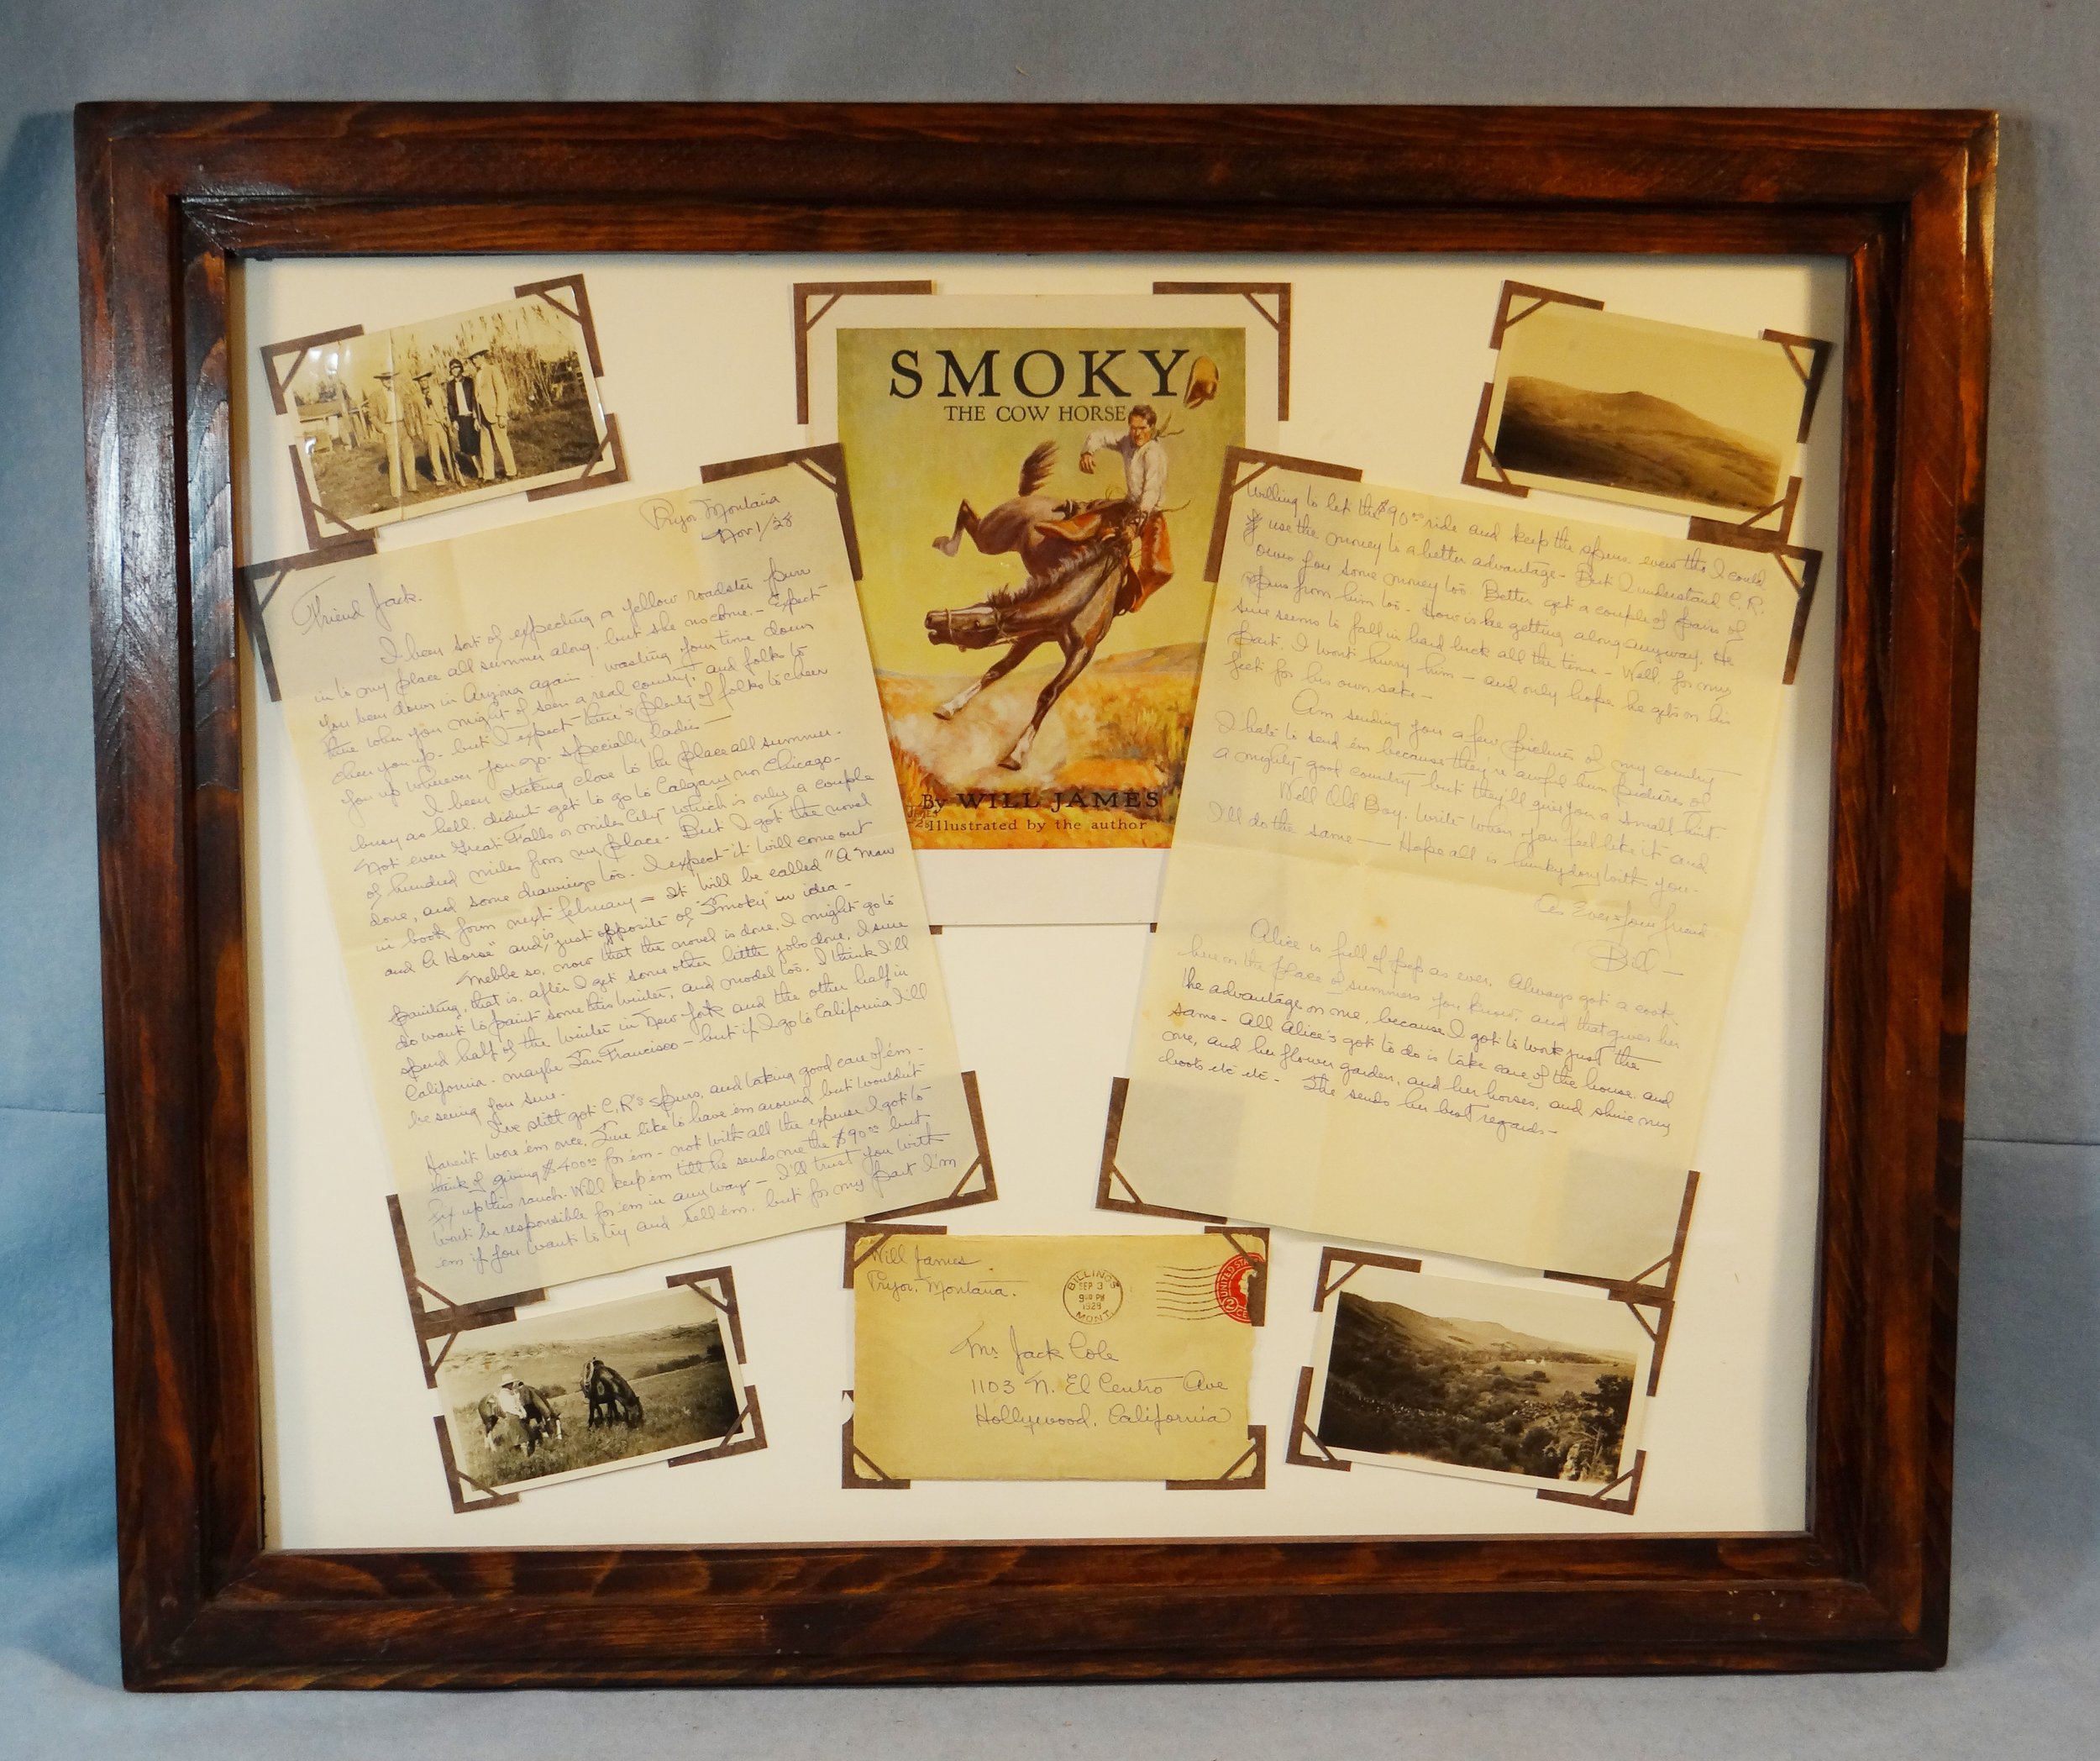 SMOKY
THE COW HORSE
By WILL JAMES
Illustrated by the author
Pryor Montana
Nov 1/28
Friend Jack.
I been sort of expecting a yellow roadster purr
in to my place all summer along, but she no come. - Expect
you been down in Arizona again wasting your time down
there when you might of seen a real country, and folk to
cheer you up. but I expect there's plenty of folks to cheer
you up wherever you go. specially ladies -
I been sticking close to the place all summer.
busy as hell. didn't get to go to Calgary nor Chicago.
Not even Great Falls or Miles City which is only a couple
of hundred miles from my place - But I got the novel
done, and some drawings too. I expect it will come out
in book form next february = It will be called "A Man
and A Horse" and is just opposite of "Smoky" in idea -
Mebbe so, now that the novel is done, I might go to
painting, that is, after I get some other little jobs done. I sure
do want to paint some this winter, and model too. I think I'll
spend half of the winter in New York and the other half in
California. maybe San Francisco - but if I go to California I'll
be seeing you sure.
I've still got C.R's spurs, and taking good care of ém -
Haven't wore ém once, Sure like to have ém around but wouldn't
think of giving $400.00 for ém - not with all the expense I got to
fix up this ranch. Will keep ém till he sends me the $90.00 but
wont be responsible for ém in any way - I'll trust you with
ém if you want to try and sell ém, but for my part I'm
willing to let the $90.00 ride and keep the spurs, even tho I could
use the money to a better advantage - But I understand C.R.
owes you some money too. Better get a couple of pairs of
spurs from him too - How is he getting along anyway. He
sure seems to fall in hard luck all the time - Well, for my
part, I wont hurry him - and only hope he gets on his
feet for his own sake -
Am sending you a few pictures of my country
I hate to send ém because they're awful bum pictures of
a mighty good country but they'll give you a small hint.
Well Old Boy, Write when you feel like it and
I'll do the same - Hope all is hunkydory with you -
As Ever your friend
Bill -
Alice is full of pep as ever. Always got a cook
here on the place of summers you know, and that gives her
the advantage on me, because I got to work just the
same - All Alice's got to do is take care of the house, and
cove, and her flower garden, and her horses, and shine my
boots etc etc - She sends her best regards -
Will James
Pryor, Montana.
BILLINGS
SEP 3
9 PM
MONT.
UNITED STA
2
Mr Jack Cole
1103 N. El Centro Ave
Hollywood, California